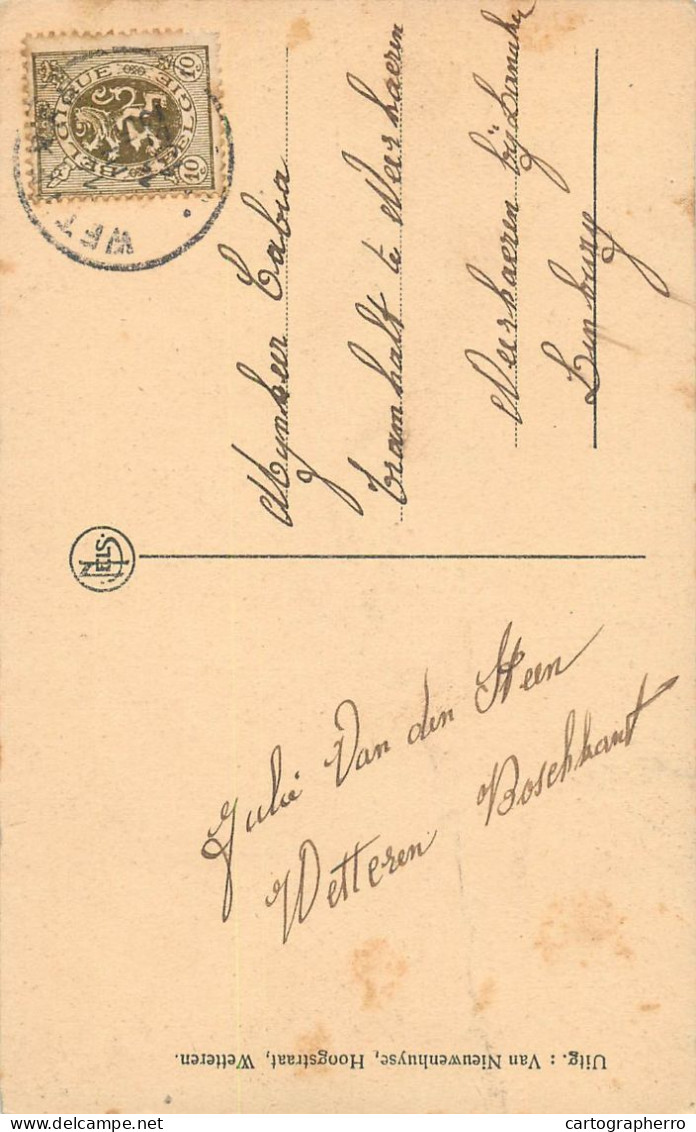 Julie Van den Steen
Wetteren Boschkant
Uitg.: Van Nieuwenhuyse, Hoogstraat, Wetteren.
NELS
BELGIQUE BELGIE
10c 10c
WET
Mynheer Cabia
Tramhalt te Neerhaeren
Neerhaeren bij Lanaken
Limburg
cartographerro